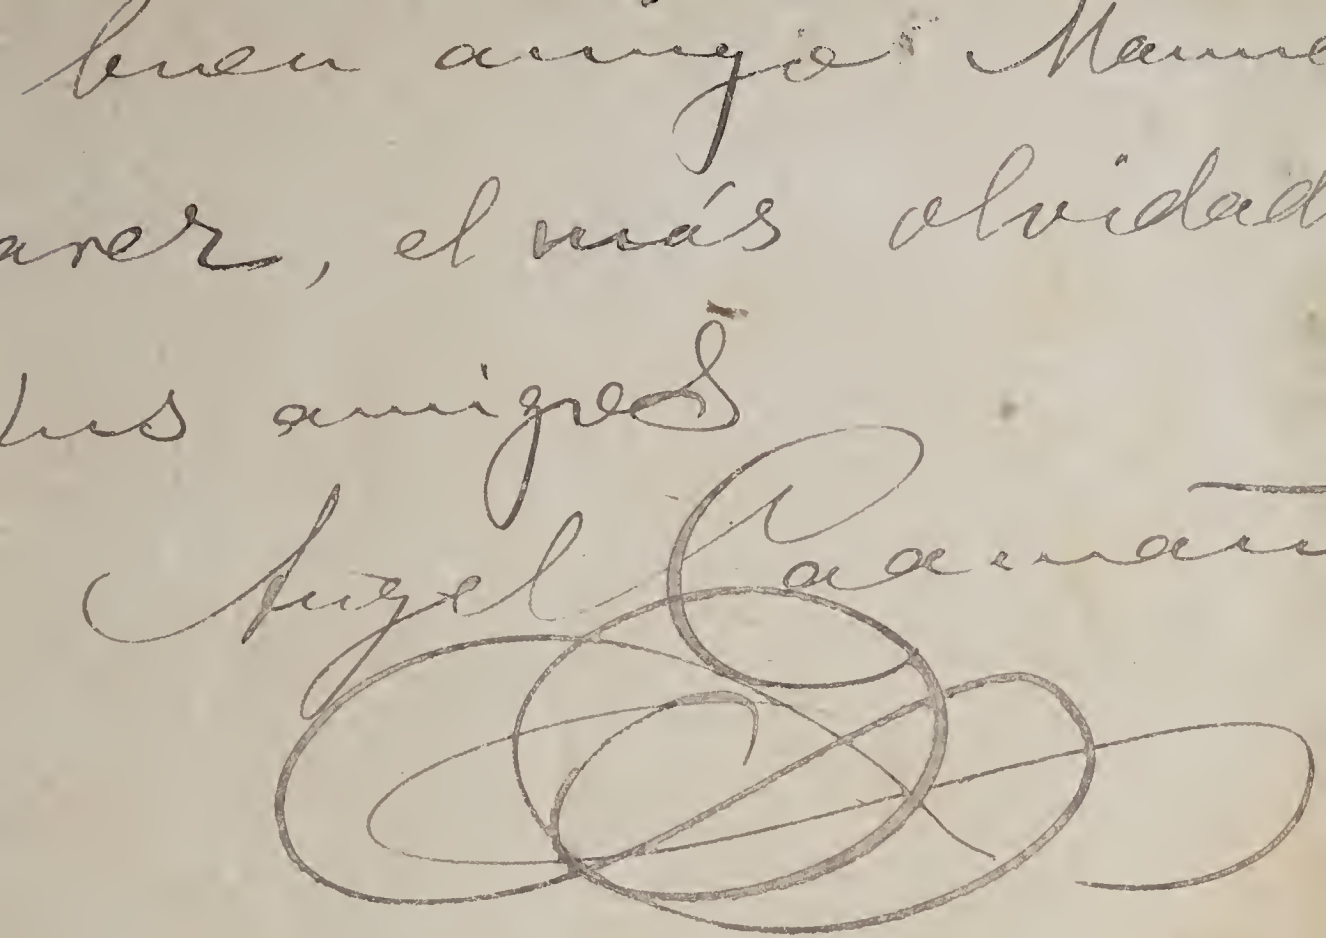 buen amigo Manue
arez, el más olvidad
tus amigos
Angel Caamañ